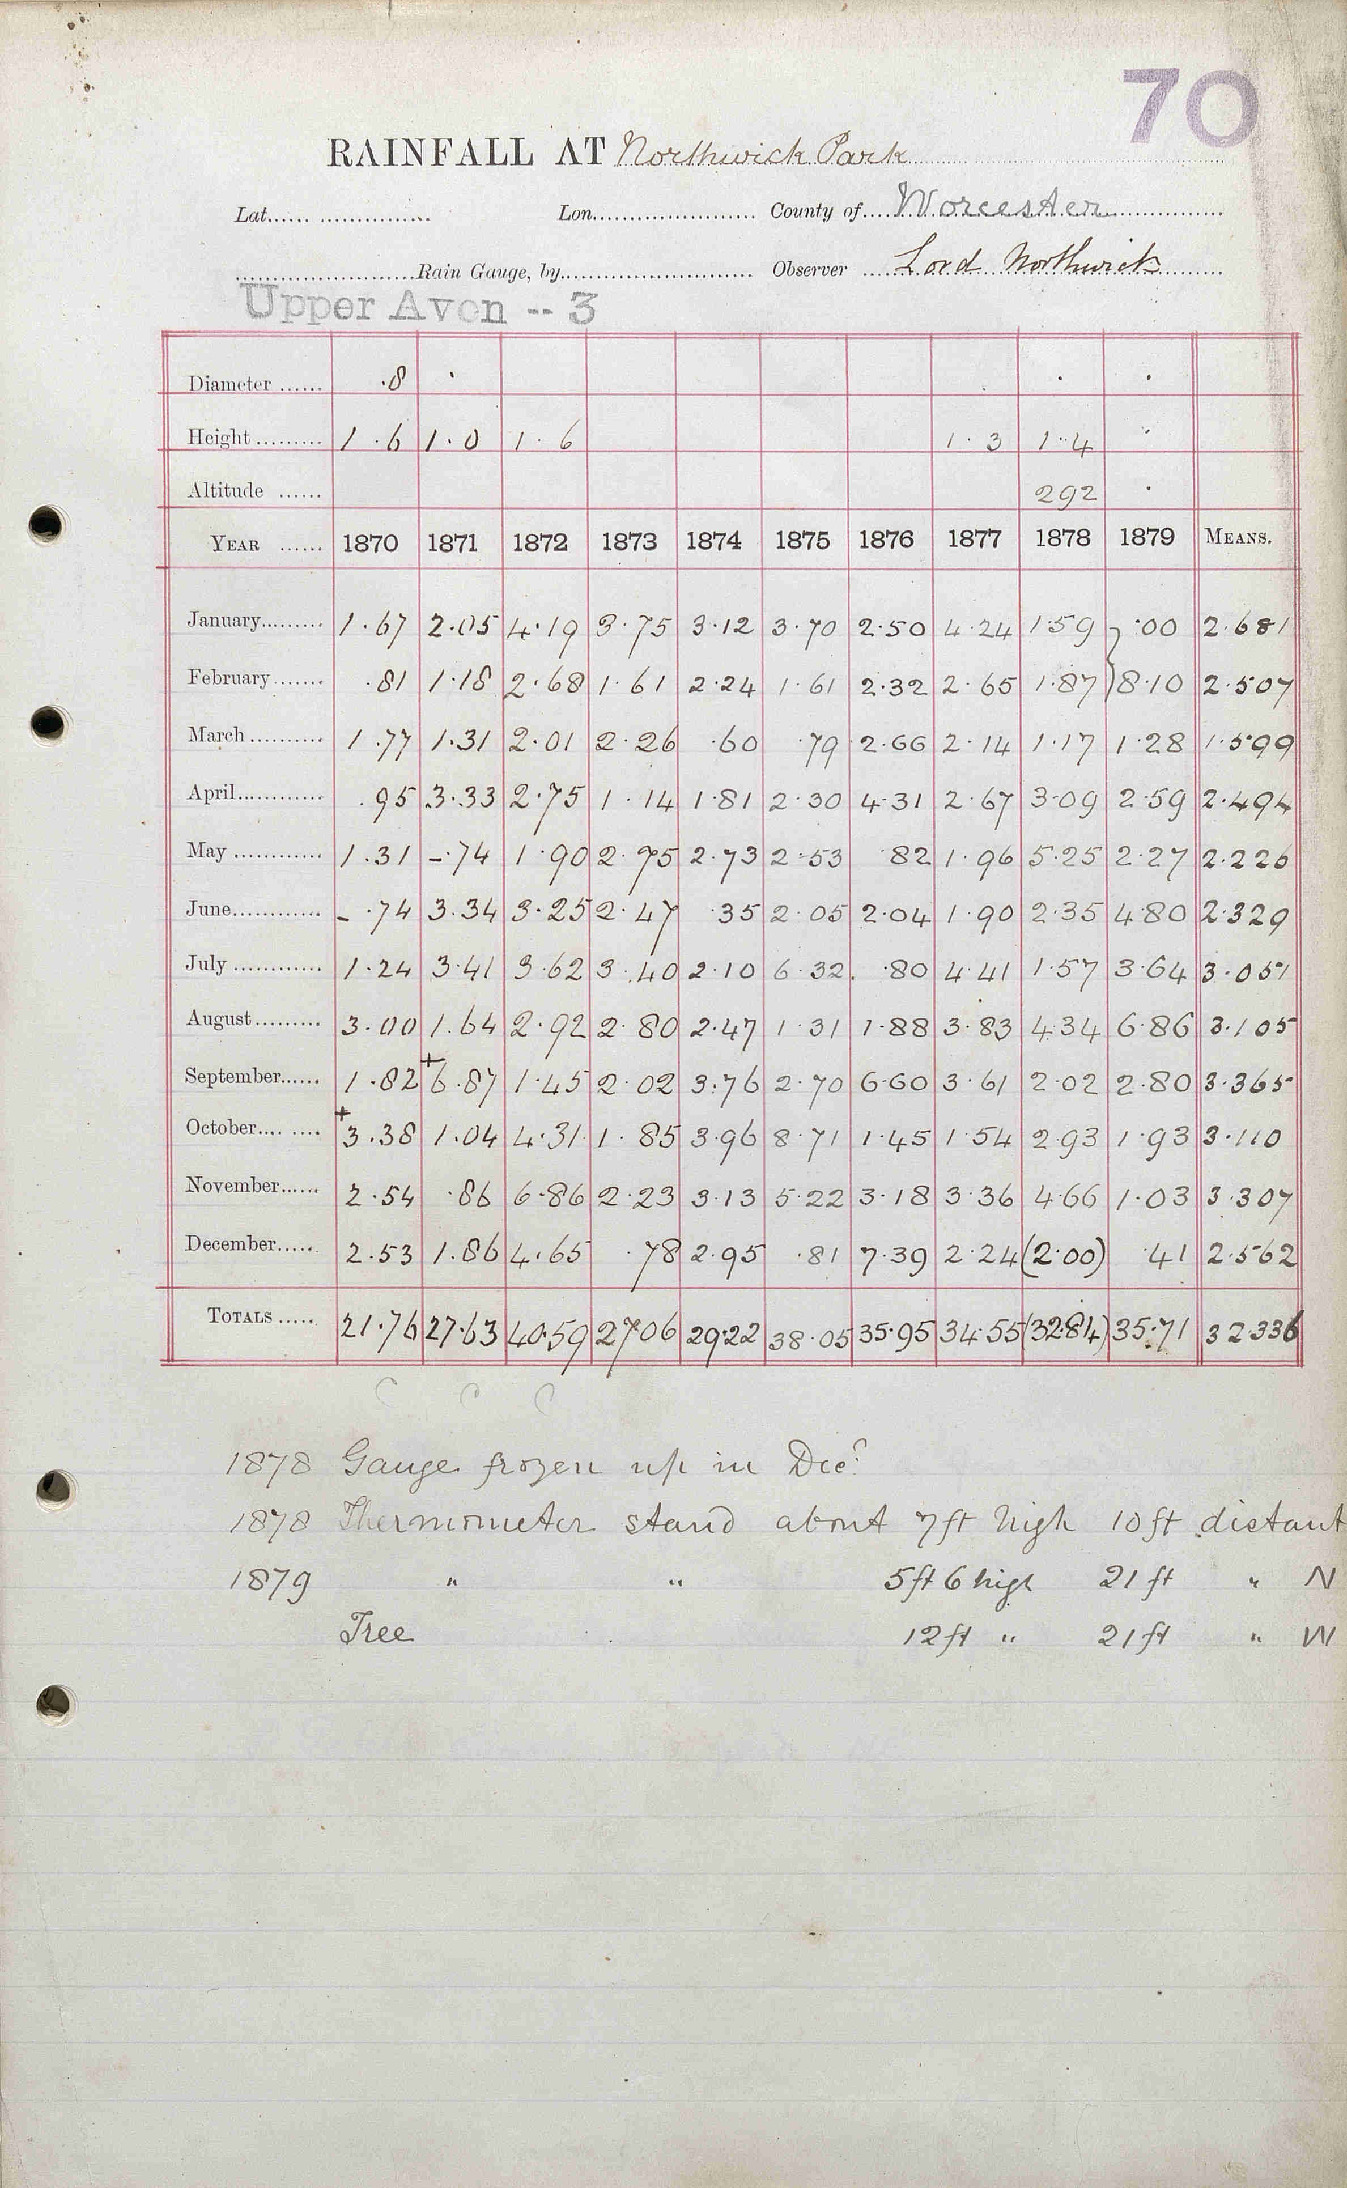 70
RAINFALL AT Northwick Park
Lat. Lon. County of Worcester
Rain Gauge, by Observer Lord Northwick
Upper Avon -- 3
Diameter ...... .8 . . .
Height ......... 1.6 1.0 1.6 1.3 1.4 .
Altitude ...... 292 .
YEAR ...... 1870 1871 1872 1873 1874 1875 1876 1877 1878 1879 MEANS.
January......... 1.67 2.05 4.19 3.75 3.12 3.70 2.50 4.24 1.59 } .00 2.681
February....... .81 1.18 2.68 1.61 2.24 1.61 2.32 2.65 1.87 8.10 2.507
March .......... 1.77 1.31 2.01 2.26 .60 .79 2.66 2.14 1.17 1.28 1.599
April............ .95 3.33 2.75 1.14 1.81 2.30 4.31 2.67 3.09 2.59 2.494
May ............ 1.31 -.74 1.90 2.75 2.73 2.53 .82 1.96 5.25 2.27 2.226
June............ -.74 3.34 3.25 2.47 .35 2.05 2.04 1.90 2.35 4.80 2.329
July ............ 1.24 3.41 3.62 3.40 2.10 6.32 .80 4.41 1.57 3.64 3.051
August ......... 3.00 1.64 2.92 2.80 2.47 1.31 1.88 3.83 4.34 6.86 3.105
September...... 1.82 +6.87 1.45 2.02 3.76 2.70 6.60 3.61 2.02 2.80 3.365
October.... .... +3.38 1.04 4.31 1.85 3.96 8.71 1.45 1.54 2.93 1.93 3.110
November...... 2.54 .86 6.86 2.23 3.13 5.22 3.18 3.36 4.66 1.03 3.307
December..... 2.53 1.86 4.65 .78 2.95 .81 7.39 2.24 (2.00) .41 2.562
TOTALS ..... 21.76 27.63 40.59 27.06 29.22 38.05 35.95 34.55 (32.84) 35.71 32.336
C C C
1878 Gauge frozen up in Decr.
1878 Thermometer stand about 7ft high 10ft distant
1879 " " 5ft 6 high 21 ft " N
Tree 12ft " 21ft " W